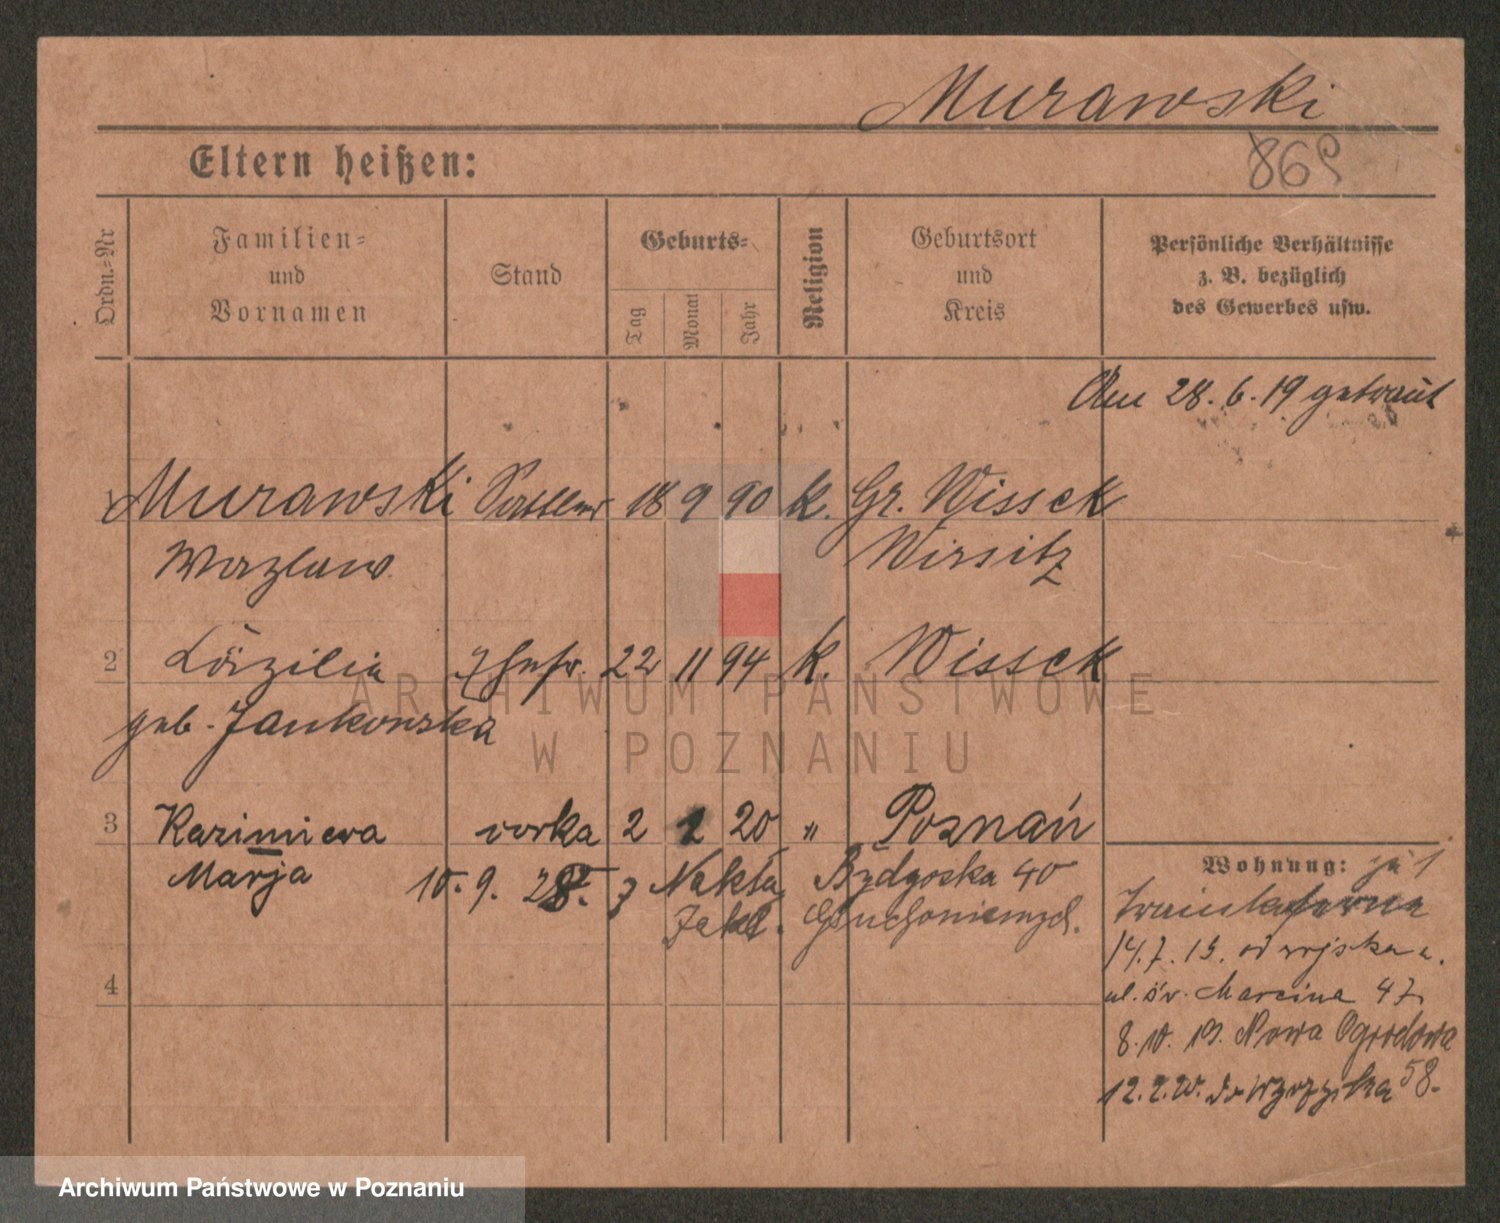 Murawski
Eltern heißen:
869
Ordn.=Nr
Familien=
und
Vornamen
Stand
Geburts=
Tag
Monat
Jahr
Religion
Geburtsort
und
Kreis
Persönliche Verhältnisse
z. B. bezüglich
des Gewerbes usw.
Am 28. 6. 19 getraut
1 Murawski Sattler 18 9 90 k. Gr. Wissek
Wirsitz
Wazlaw
2 Cäzilia 22 11 94 k. Wissek
geb. Jankowska
3 Kazimiera córka 2 2 20 " Poznań
Marja 10. 9. 28. z Nakła, Bydgoska 40
Zakł. Głuchoniemych.
Wohnung:
14. 7. 19. od wojska
ul. św. Marcina 47
8. 10. 19. Nowa Ogrodowa
58.
12. 2. 20. do Wyrzyska
4
ARCHIWUM PAŃSTWOWE
W POZNANIU
Archiwum Państwowe w Poznaniu